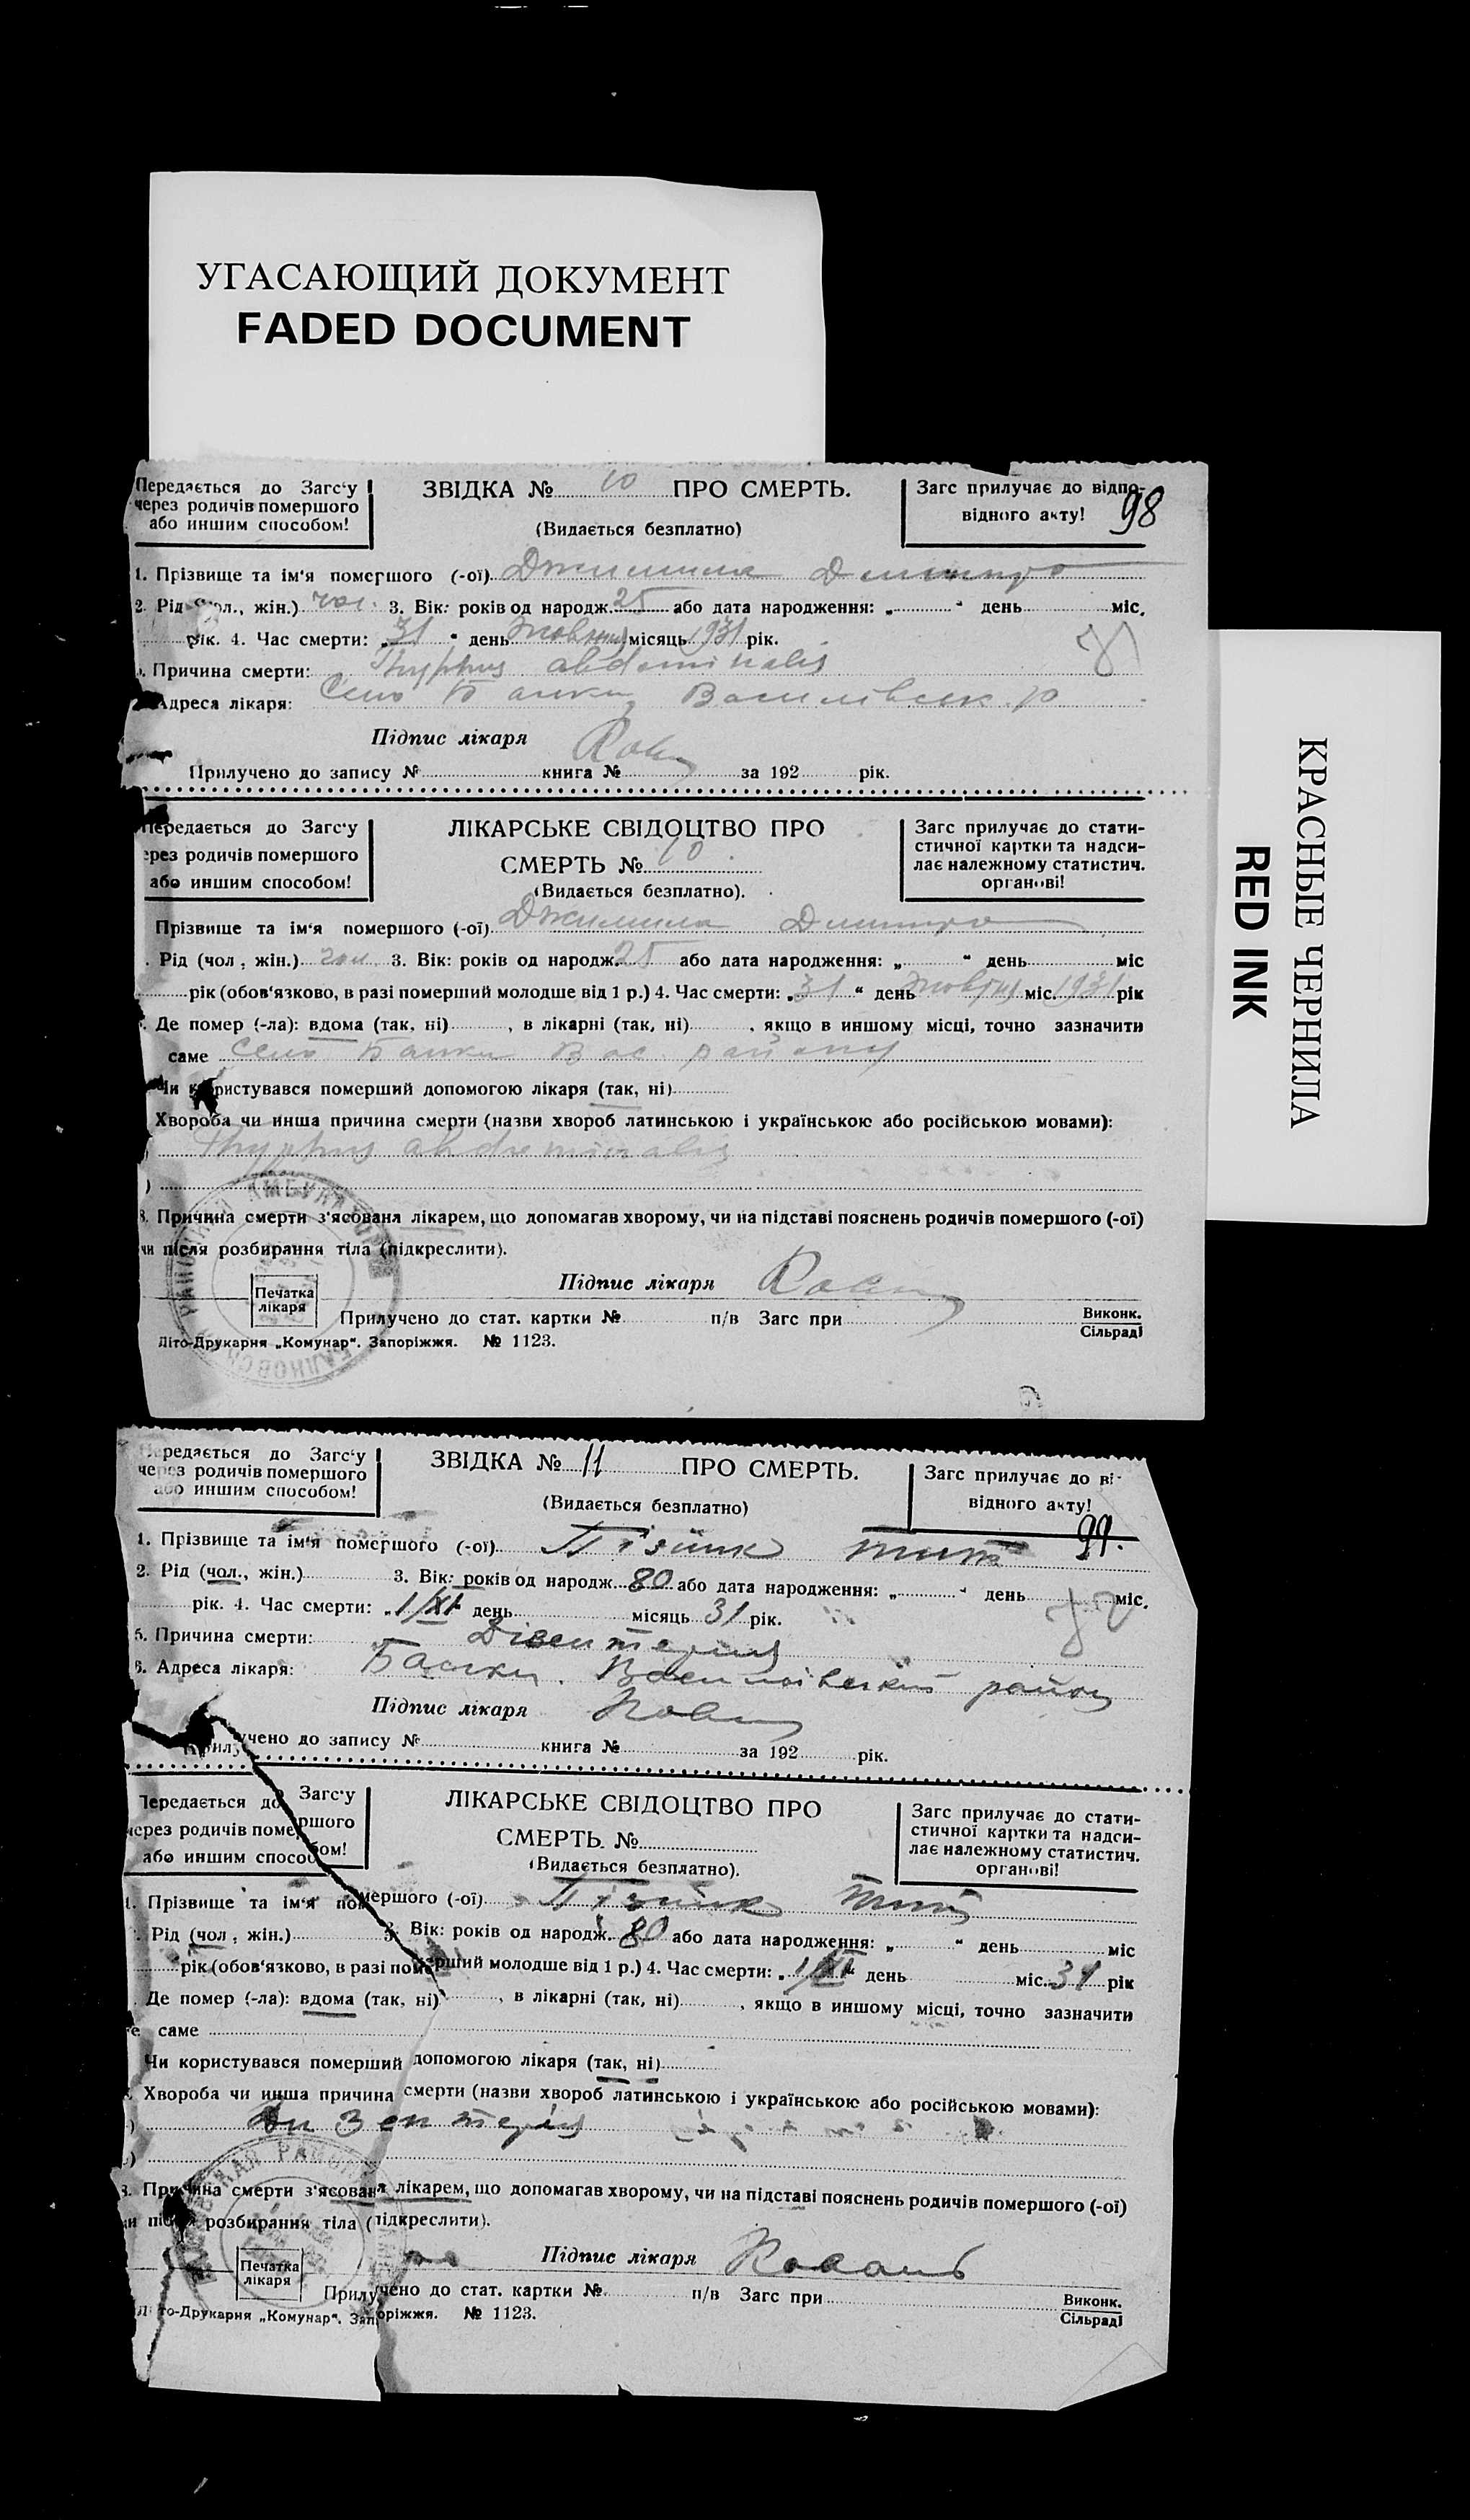 УГАСАЮЩИЙ ДОКУМЕНТ
FADED DOCUMENT
КРАСНЫЕ ЧЕРНИЛА
RED INK
Передається до Загс'у
через родичів помершого
або иншим способом!
ЗВІДКА № 10 ПРО СМЕРТЬ.
(Видається безплатно)
Загс прилучає до відпо-
відного акту!
98
1. Прізвище та ім'я помершого (-ої) Джимила Дмитро
2. Рід чол., жін.) чол. 3. Вік: років од народж. 25 або дата народження: „ “ день міс.
рік. 4. Час смерти: „31“ день Жовтня місяць 1931 рік.
Причина смерти: Thyphus abdominalis
Адреса лікаря: Село Балки Василівськ. р
Підпис лікаря
Прилучено до запису № книга № за 192 рік.
Передається до Загс'у
через родичів помершого
або иншим способом!
ЛІКАРСЬКЕ СВІДОЦТВО ПРО
СМЕРТЬ № 10
(Видається безплатно).
Загс прилучає до стати-
стичної картки та надси-
лає належному статистич.
органові!
Прізвище та ім'я помершого (-ої) Джимила Дмитро
Рід (чол., жін.) чол. 3. Вік: років од народж. 25 або дата народження: „ “ день міс
рік (обов'язково, в разі померший молодше від 1 р.) 4. Час смерти: „31“ день Жовтня міс. 1931 рік
Де помер (-ла): вдома (так, ні) , в лікарні (так, ні) , якщо в иншому місці, точно зазначити
саме Село Балки Вас. району
Чи користувався померший допомогою лікаря (так, ні)
Хвороба чи инша причина смерти (назви хвороб латинською і українською або російською мовами):
Thyphus abdominalis
8. Причина смерти з'ясована лікарем, що допомагав хворому, чи на підставі пояснень родичів помершого (-ої)
чи після розбирання тіла (підкреслити).
Підпис лікаря
Печатка
лікаря
Прилучено до стат. картки № п/в Загс при Виконк.
Сільраді
Літо-Друкарня „Комунар“. Запоріжжя. № 1123.
Передається до Загс'у
через родичів помершого
або иншим способом!
ЗВІДКА № 11 ПРО СМЕРТЬ.
(Видається безплатно)
Загс прилучає до ві
відного акту!
99.
1. Прізвище та ім'я помершого (-ої) Тит
2. Рід (чол., жін.) 3. Вік: років од народж. 80 або дата народження: „ “ день міс.
рік. 4. Час смерти: „1/XI“ день місяць 31 рік.
5. Причина смерти: Дізентерия
6. Адреса лікаря: Балки. Василівський район
Підпис лікаря
Прилучено до запису № книга № за 192 рік.
Передається до Загс'у
через родичів помершого
або иншим способом!
ЛІКАРСЬКЕ СВІДОЦТВО ПРО
СМЕРТЬ. №
(Видається безплатно).
Загс прилучає до стати-
стичної картки та надси-
лає належному статистич.
органові!
1. Прізвище та ім'я помершого (-ої) Тит
Рід (чол., жін.) 3. Вік: років од народж. 80 або дата народження: „ “ день міс
рік (обов'язково, в разі померший молодше від 1 р.) 4. Час смерти: „1/XI“ день міс. 31 рік
Де помер (-ла): вдома (так, ні) , в лікарні (так, ні) , якщо в иншому місці, точно зазначити
саме
Чи користувався померший допомогою лікаря (так, ні)
Хвороба чи инша причина смерти (назви хвороб латинською і українською або російською мовами):
Дизентерія
8. Причина смерти з'ясована лікарем, що допомагав хворому, чи на підставі пояснень родичів помершого (-ої)
чи після розбирання тіла (підкреслити).
Підпис лікаря Коваль
Печатка
лікаря
Прилучено до стат. картки № п/в Загс при Виконк.
Сільраді
Літо-Друкарня „Комунар“. Запоріжжя. № 1123.